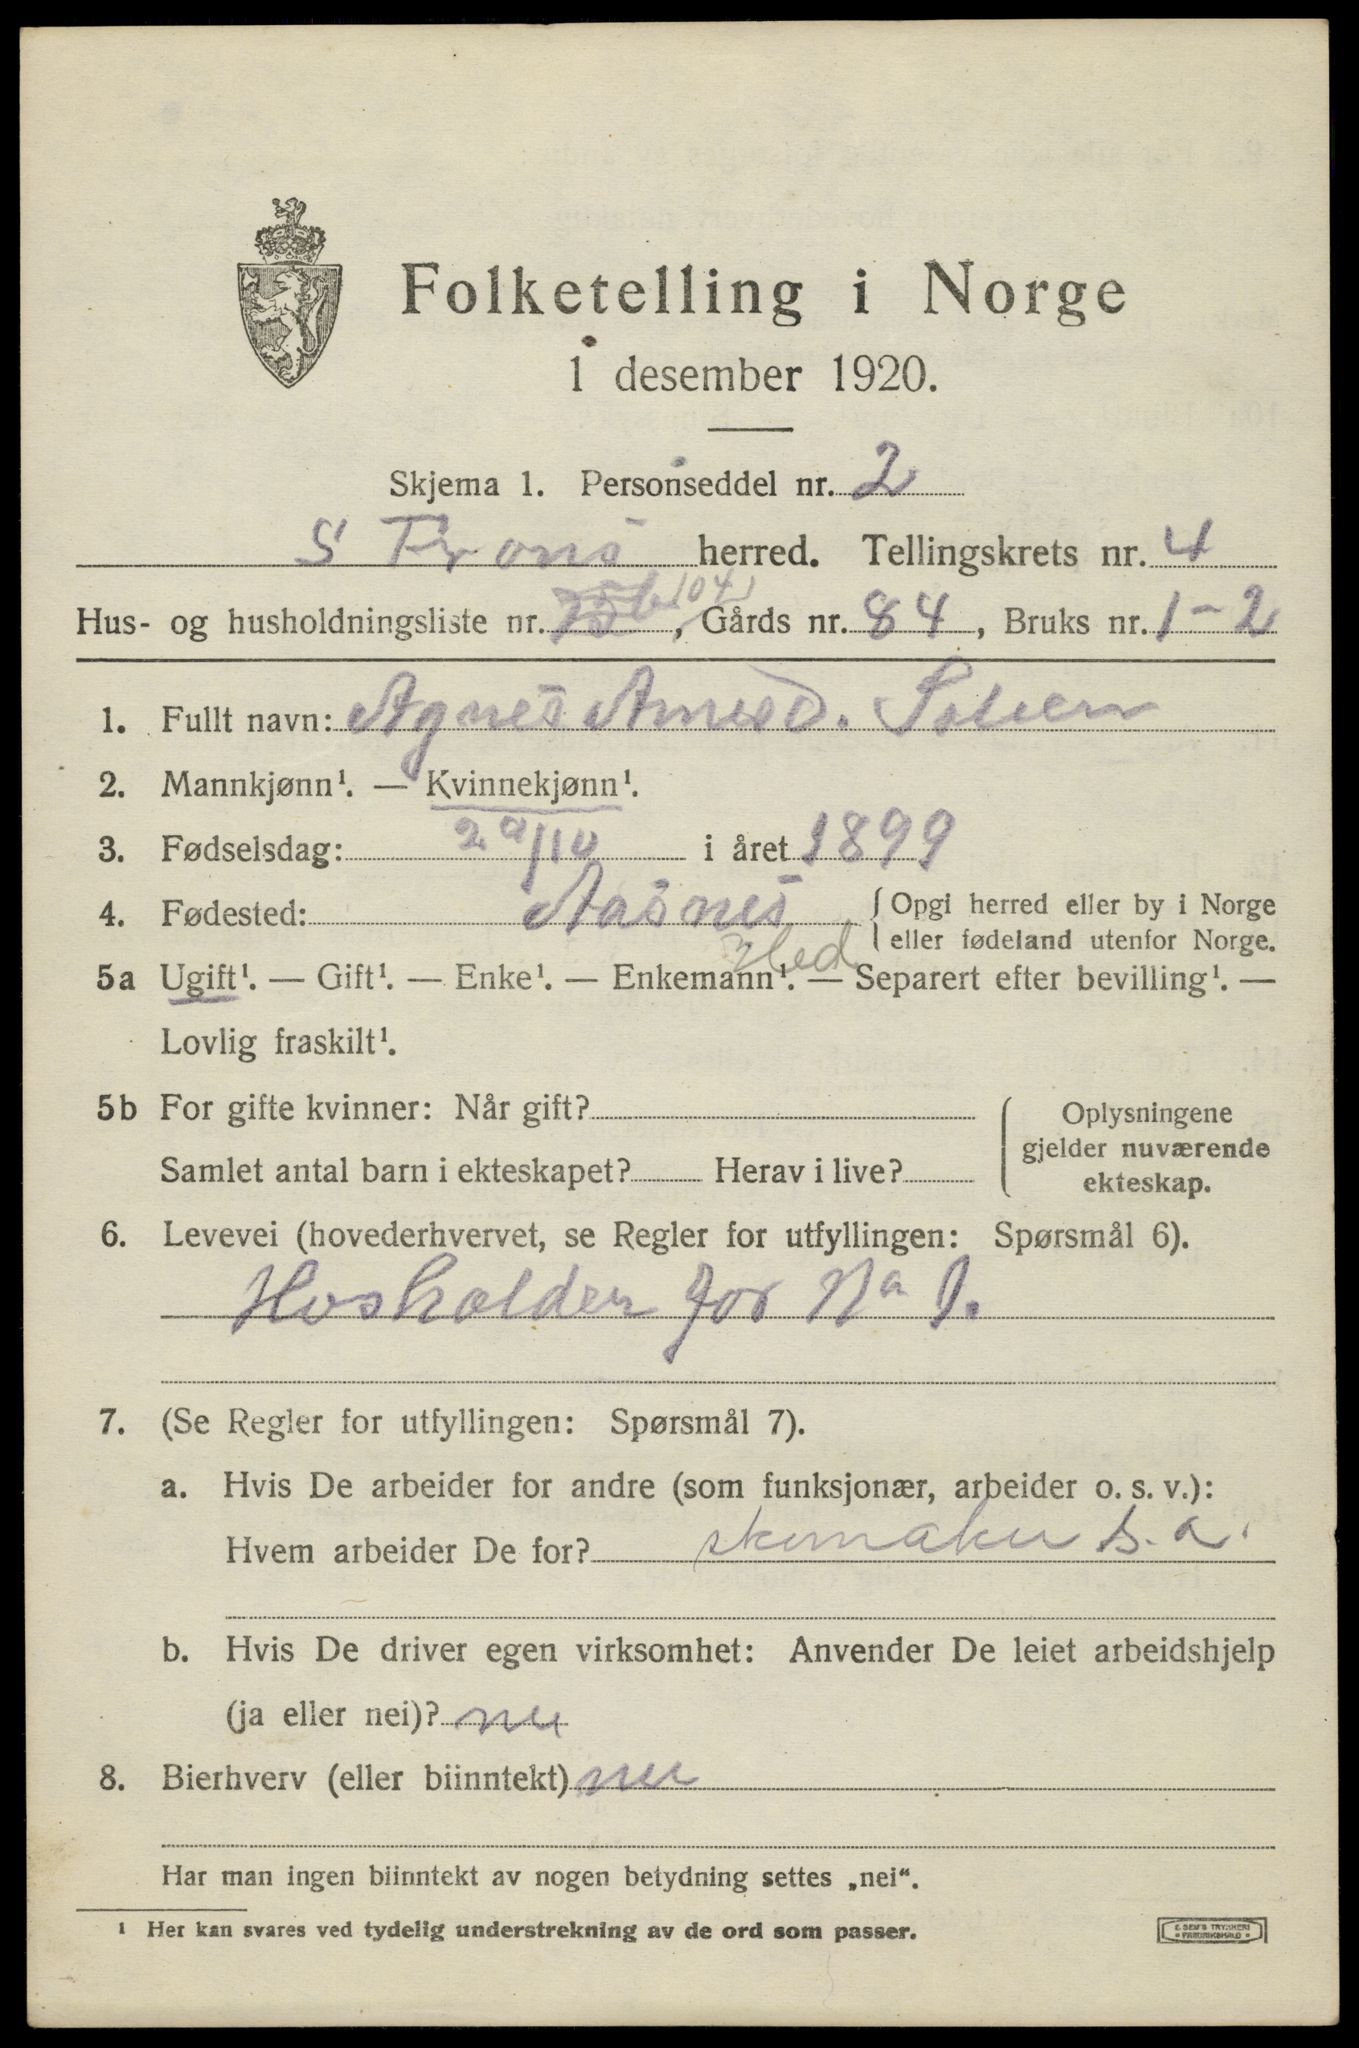 Folketelling i Norge
1 desember 1920.
Skjema 1. Personseddel nr. 2
S Frons herred. Tellingskrets nr. 4
Hus- og husholdningsliste nr. 104, Gårds nr. 84, Bruks nr. 1-2
1. Fullt navn: Agnes Amesd. Solien
2. Mannkjønn¹. — Kvinnekjønn¹.
3. Fødselsdag: 29/10 i året 1899
4. Fødested: Aasnes { Opgi herred eller by i Norge
eller fødeland utenfor Norge.
Hed
5a Ugift¹. — Gift¹. — Enke¹. — Enkemann¹. — Separert efter bevilling¹. —
Lovlig fraskilt¹.
5b For gifte kvinner: Når gift?
Samlet antal barn i ekteskapet? Herav i live?
Oplysningene
gjelder nuværende
ekteskap.
6. Levevei (hovederhvervet, se Regler for utfyllingen: Spørsmål 6).
Husholder for Na 1.
7. (Se Regler for utfyllingen: Spørsmål 7).
a. Hvis De arbeider for andre (som funksjonær, arbeider o. s. v.):
Hvem arbeider De for? skomaker s. a.
b. Hvis De driver egen virksomhet: Anvender De leiet arbeidshjelp
(ja eller nei)? nei
8. Bierhverv (eller biinntekt) nei
Har man ingen biinntekt av nogen betydning settes „nei“.
¹ Her kan svares ved tydelig understrekning av de ord som passer.
E. SEM'S TRYKKERI
FREDRIKSHALD